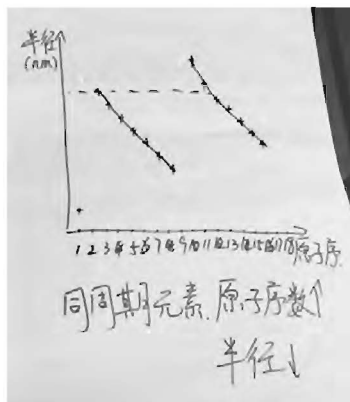 半径↑
(nm)
1 2 3 4 5 6 7 8 9 10 11 12 13 14 15 16 17 18 原子序
同周期元素.原子序数↑
半径↓